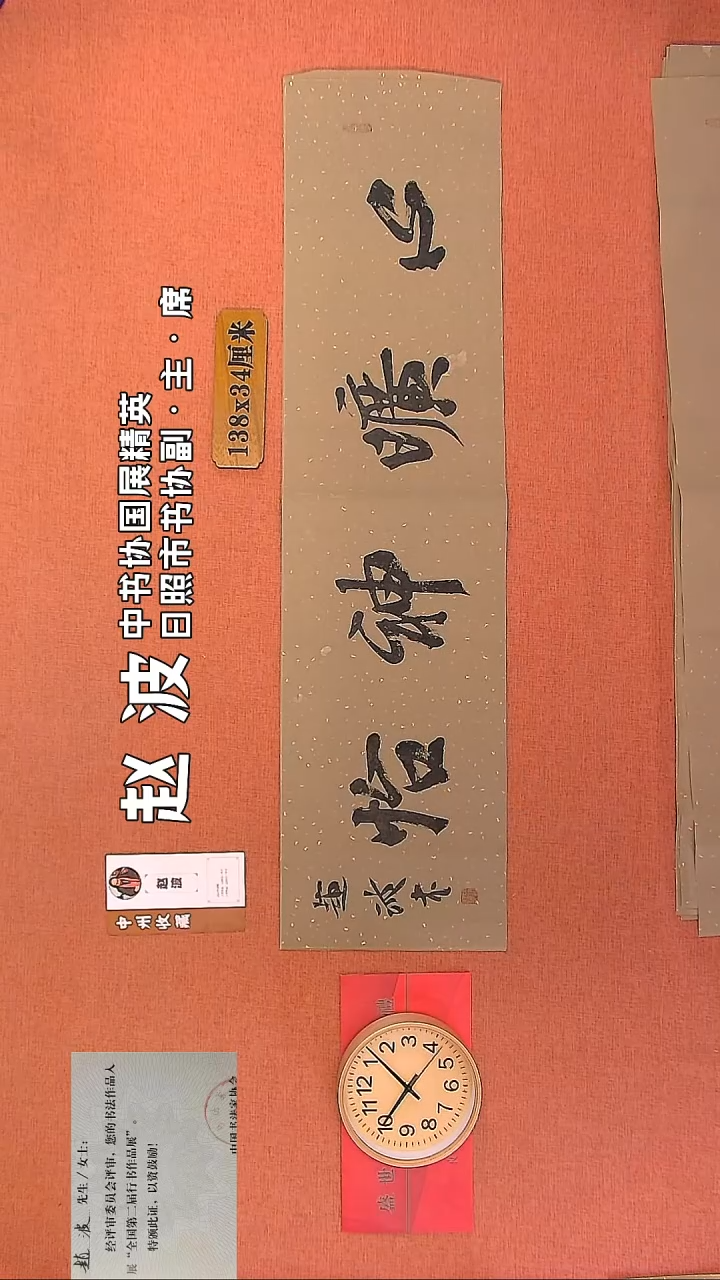 赵波
中书协国展精英
日照市书协副·主·席
138x34厘米
赵波
中州收藏
心曠神怡
波
先生/女士:
经评审委员会评审，您的书法作品入
展“全国第二届行书作品展”。
特颁此证，以资鼓励!
中国书法家协会
盛世
12
1
2
3
4
5
6
7
8
9
10
11